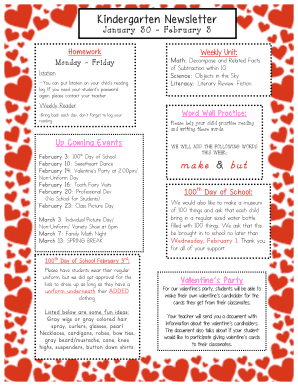 Kindergarten Newsletter
January 30 - February 3
Homework
Monday - Friday
Istation
- You can put Istation on your child's reading
log. If you need your student's password
again, please contact your teacher.
Weekly Reader
-Bring back each day, don't forget to log your
reading.
Up Coming Events
February 3: 100th Day of School
February 10: Sweetheart Dance
February 14: Valentine's Party at 2:00pm/
Non-Uniform Day
February 16: Tooth Fairy Visits
February 20: Professional Dev.
(No School for Students)
February 23: Class Picture Day
March 3: Individual Picture Day/
Non-Uniform/ Variety Show at 6pm
March 7: Family Math Night
March 13: SPRING BREAK
100th Day of School February 3rd:
Please have students wear their regular
uniform, but we did get approval for the
kids to dress up as long as they have a
uniform underneath their ADDED
clothing.
Listed below are some fun ideas:
Gray wigs or gray colored hair
spray, curlers, glasses, pearl
necklaces, cardigans, robes, bow ties,
gray beard/mustache, cane, knee
highs, suspenders, button down shirts
Weekly Unit:
Math: Decompose and Related Facts
of Subtraction within 10
Science: Objects in the Sky
Literacy: Literary Review: Fiction
Word Wall Practice:
Please help your child practice reading
and writing these words.
WE WILL ADD THE FOLLOWING WORDS
THIS WEEK:
make & but
100th Day of School:
We would also like to make a museum
of 100 things and ask that each child
bring in a regular sized water bottle
filled with 100 things. We ask that this
be brought in to school no later than
Wednesday, February 1. Thank you
for all of your support.
Valentine's Party
For our valentine's party, students will be able to
make their own valentine's card holder for the
cards they get from their classmates.
Your teacher will send you a document with
information about the valentine's cards/party.
The document also talks about if your student
would like to participate giving valentine's cards
to their classmates.